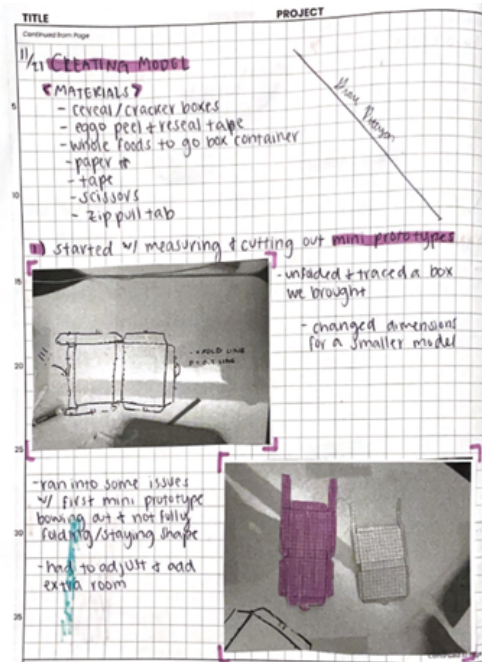 TITLE
PROJECT
Continued from Page
11/21 CREATING MODEL
MATERIALS
- cereal/cracker boxes
- eggo peel + reseal tape
- whole foods to go box container
- paper
- tape
- scissors
- zip pull tab
5
10
1) started w/ measuring & cutting out mini prototypes
15
- unfolded + traced a box
we brought
- changed dimensions
for a smaller model
FOLD LINE
LINE
20
25
- ran into some issues
w/ first mini prototype
bowing out + not fully
folding/staying shape
- had to adjust & add
extra room
30